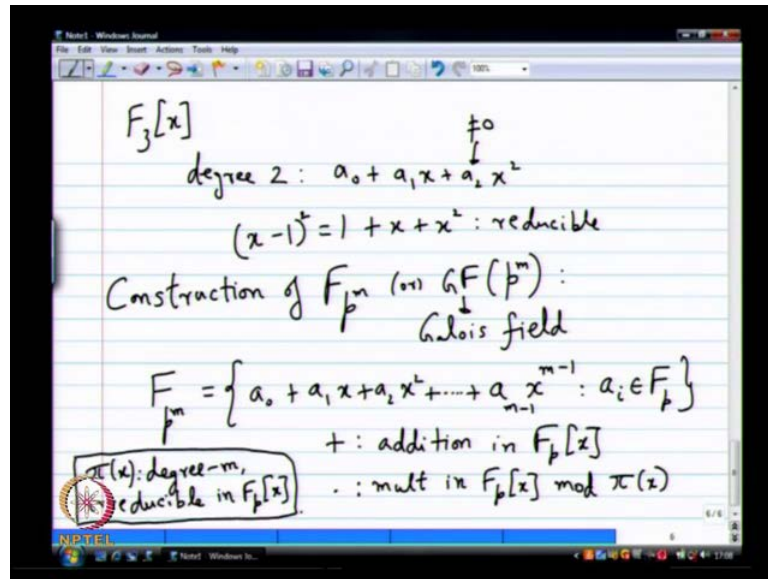 Note1 - Windows Journal
File Edit View Insert Actions Tools Help
100%
F₃[x]
≠0
↓
degree 2: a₀ + a₁x + a₂x²
(x-1)² = 1 + x + x² : reducible
Construction of F_{p^m} (or) GF(p^m) :
↓
Galois field
F_{p^m} = { a₀ + a₁x + a₂x² + ... + a_{m-1} x^{m-1} : a_i ∈ F_p }
+ : addition in F_p[x]
π(x): degree-m,
reducible in F_p[x]
· : mult in F_p[x] mod π(x)
6/6
6
NPTEL
Note1 - Windows Jo...
17:08